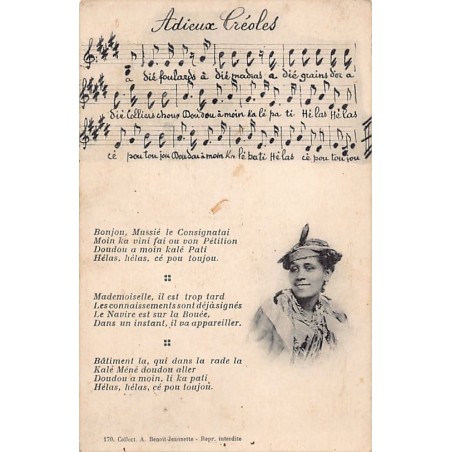 Adieux Créoles
a dié foulards à dié madras a dié grains d'or a
dié Colliers choux Doudou à moin Ka lé pa ti Hélas Hélas
cé pou toujou Doudou à moin Ka lé bati Hélas cè pou toujou
Bonjou, Mussié le Consignatai
Moin ka vini fai ou von Pétition
Doudou a moin kalé Pati
Hélas, hélas, cé pou toujou.
Mademoiselle, il est trop tard
Les connaissements sont déjà signés
Le Navire est sur la Bouée,
Dans un instant, il va appareiller.
Bâtiment la, qui dans la rade la
Kalé Méné doudou aller
Doudou a moin, li ka pati
Hélas, hélas, cé pou toujou.
170, Collect. A. Benoit-Jeannette - Repr. interdite